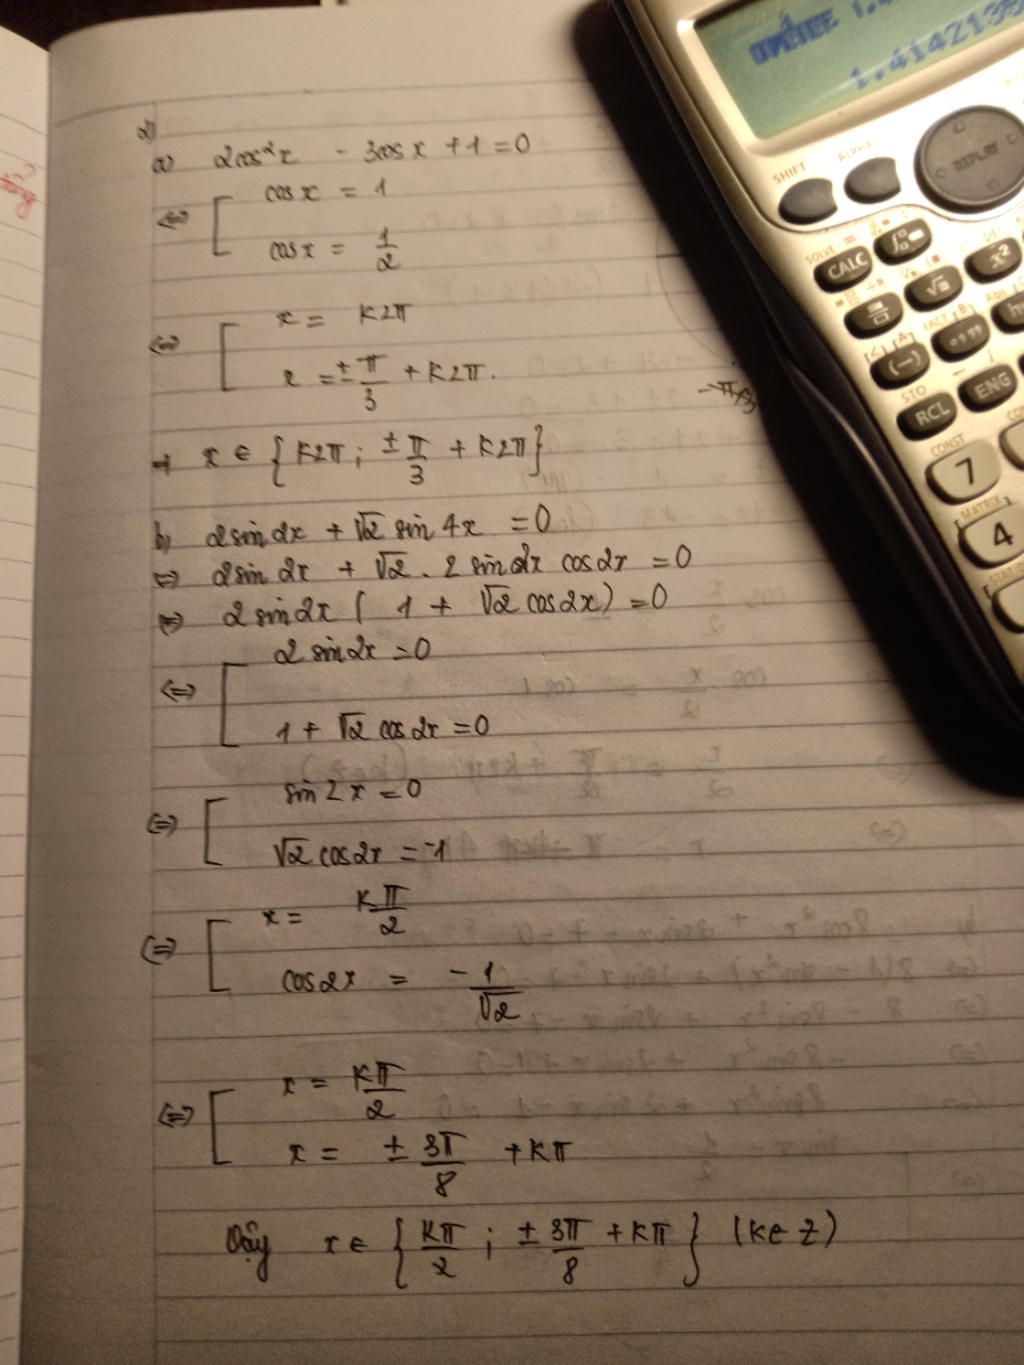 2)
a) 2cos²x - 3cosx + 1 = 0
⇔ [ cosx = 1
cosx = 1/2
⇔ [ x = k2π
x = ± π/3 + k2π.
→ x ∈ { k2π ; ± π/3 + k2π }
b) 2sin2x + √2 sin4x = 0
⇔ 2sin2x + √2 . 2 sin2x cos2x = 0
⇔ 2 sin2x ( 1 + √2 cos2x) = 0
⇔ [ 2 sin2x = 0
1 + √2 cos2x = 0
⇔ [ sin2x = 0
√2 cos2x = -1
⇔ [ x = kπ/2
cos2x = -1/√2
⇔ [ x = kπ/2
x = ± 3π/8 + kπ
Vậy x ∈ { kπ/2 ; ± 3π/8 + kπ } (k ∈ Z)
SHIFT
ALPHA
REPLAY
SOLVE =
CALC
x²
√
(-)
STO
RCL
ENG
CONST
7
MATRIX
4